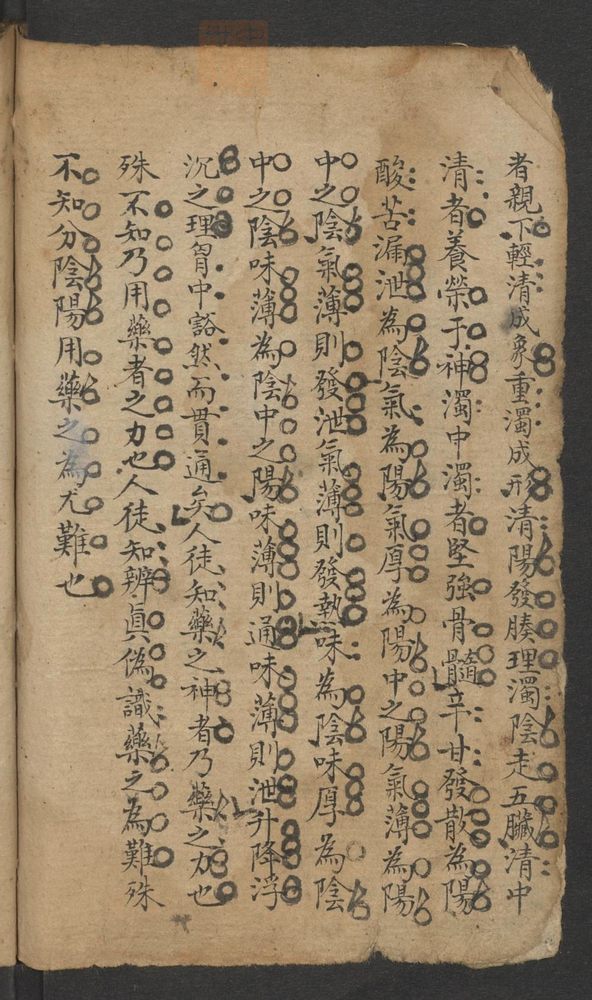 者親下輕清成象重濁成形清陽發腠理濁陰走五臟清中
清者養榮于神濁中濁者堅強骨髓辛甘發散為陽
酸苦漏泄為陰氣為陽氣厚為陽中之陽氣薄為陽
中之陰氣薄則發泄氣薄則發熱味為陰味厚為陰
中之陰味薄為陰中之陽味薄則通味薄則泄升降浮
沉之理胷中豁然而貫通矣人徒知藥之神者乃藥之力也
殊不知乃用藥者之力也人徒知辨真偽識藥之為難殊
不知分陰陽用藥之為尤難也